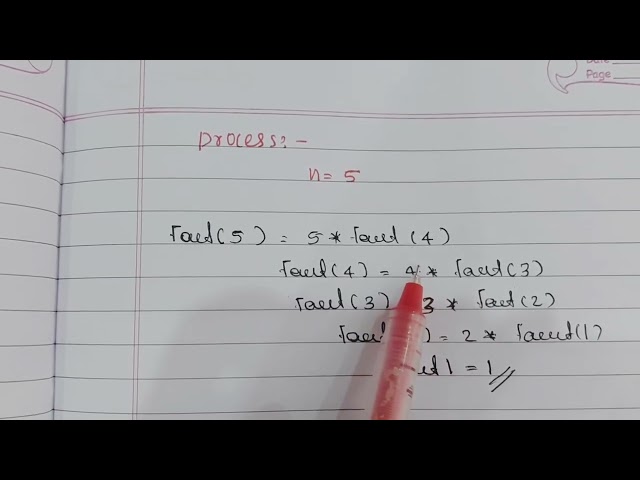 Date
Page
process:-
n= 5
fact(5) = 5 * fact (4)
fact(4) = 4 * fact(3)
fact(3) 3 * fact(2)
fact ) = 2 * fact(1)
1 = 1